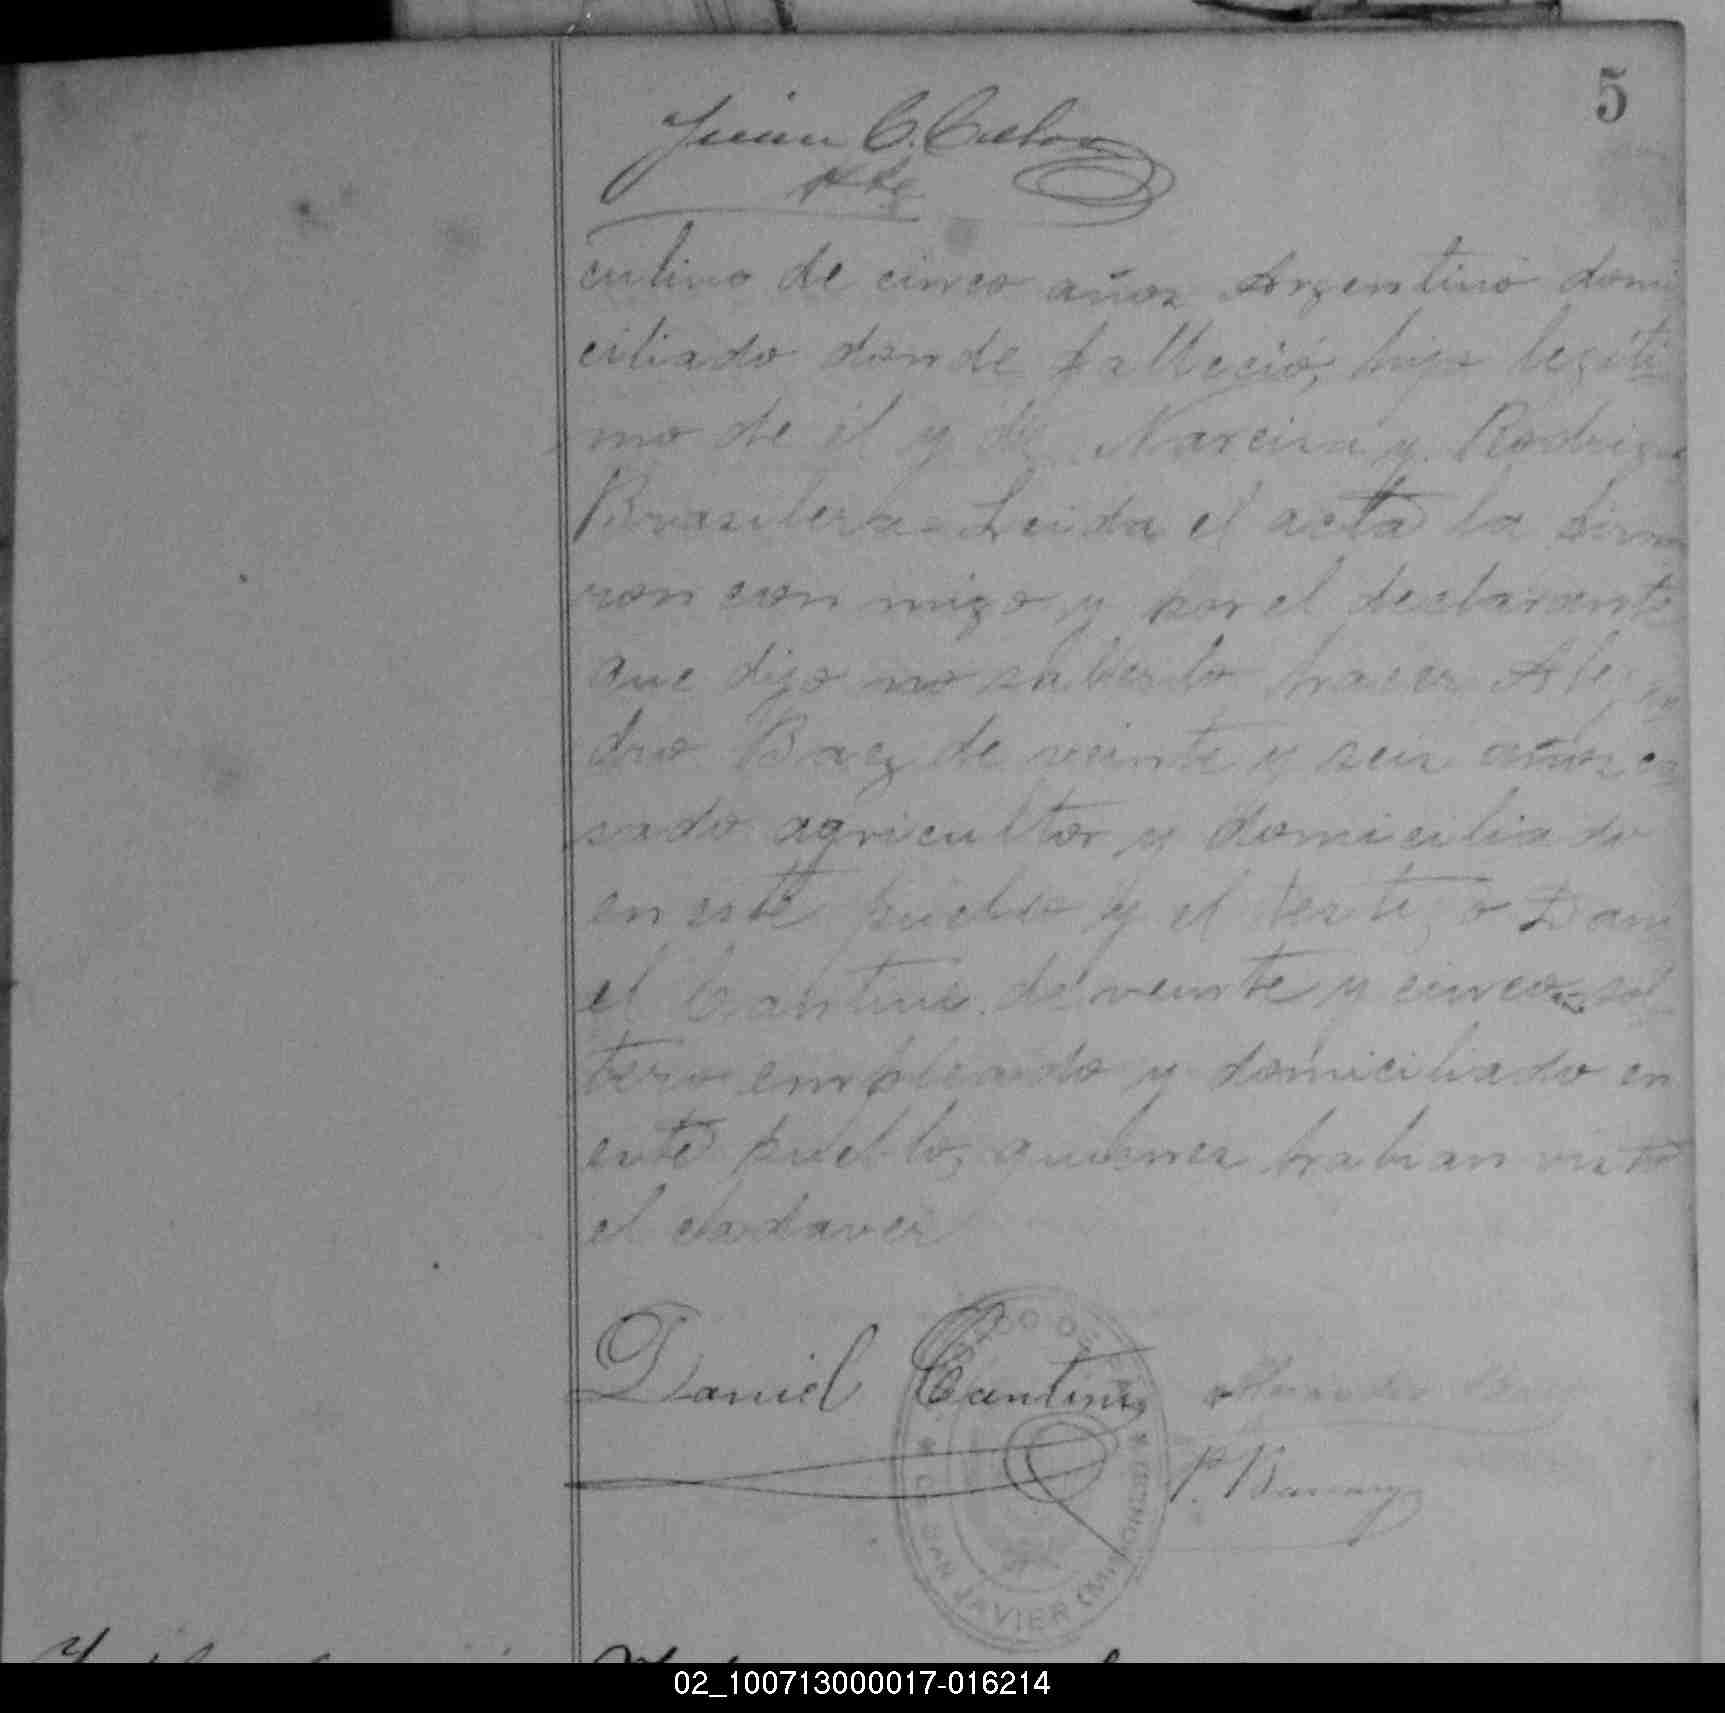 5
culino de cinco años Argentino domi
ciliado donde falleció, hijo legiti
mo de él y de Narcisa y. Rodrigu
Brasilera = Leida el acta la firma
ron con migo y por el declarante
que dijo no saberlo hacer Alejan
dro Baez de veinte y seis años ca
sado agricultor y domiciliado
en este pueblo y el testigo Dani
el Cantini de veinte y cinco sol
tero empleado y domiciliado en
este pueblo, quienes habian visto
el cadaver
Daniel Cantini
SAN JAVIER (MISIONES)
02_100713000017-016214